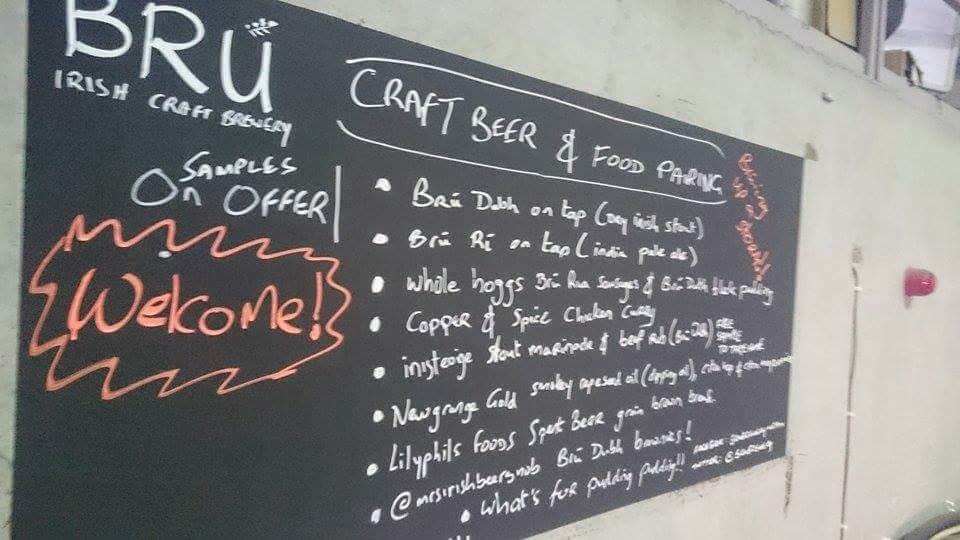 BRÚ
IRISH CRAFT BREWERY
SAMPLES
On OFFER
Welcome!
CRAFT BEER & FOOD PAIRING
• Brú Dubh on tap (Dry irish stout)
• Brú Rí on tap (india pale ale)
• whole hoggs Brú Rua Sausages & Brú Dubh black pudding
• Copper & Spice Chicken Curry
• inisteoige Stout marinade & beef rub (Brú Dubh) FREE SAMPLE TO TAKE HOME
• Newgrange Gold smokey rapeseed oil (dipping oil),
• Lilyphils Foods Spent Beer grain brown bread.
• @mrsirishbeersnob Brú Dubh brownies!
• What's for pudding pudding!!